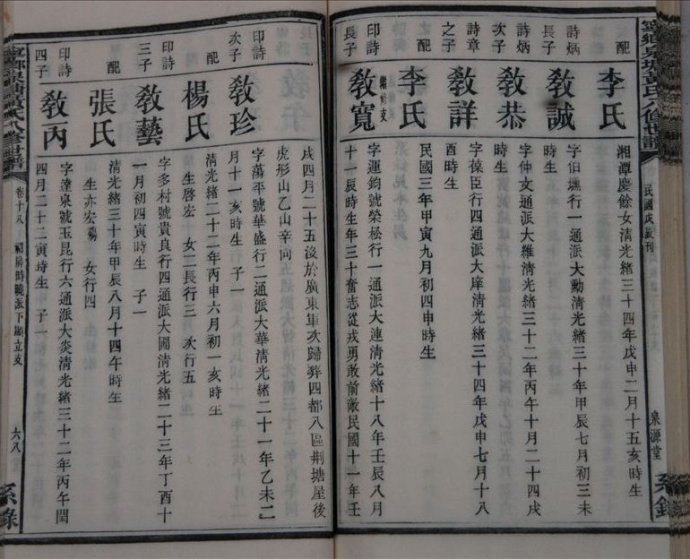 寧鄉泉塘黃氏八修世譜
民國戊寅刊
泉源堂
系錄
配
李氏
湘潭慶餘女清光緒三十四年戊申二月十五亥時生
詩炳長子
教誠
字伯壎行一通派大勳清光緒三十年甲辰七月初三未時生
詩炳次子
教恭
字仲文通派大維清光緒三十二年丙午十月二十四戌時生
詩章之子
教詳
字葆臣行四通派大庠清光緒三十四年戊申七月十八酉時生
配
李氏
民國三年甲寅九月初四申時生
長子
教寬
字運鈞號榮松行一通派大連清光緒十八年壬辰八月十一辰時生年三十奮志從戎勇敢前敵民國十一年壬
戌四月二十五沒於廣東軍次歸葬四都八區荆塘屋後虎形山乙山辛向
印詩次子
教珍
字萬平號華盛行二通派大華清光緒二十一年乙未二月十一亥時生 子一
配
楊氏
清光緒二十二年丙申六月初一亥時生
生啓宏 女二長行三 次行五
印詩三子
教藝
字多村號貴良行四通派大圃清光緒二十三年丁酉十一月初四寅時生 子一
配
張氏
清光緒三十年甲辰八月十四午時生
生亦宏 女行四
印詩四子
教丙
字達泉號玉昆行六通派大炎清光緒三十二年丙午閏四月二十二寅時生 子一
卷十八
派下顯立支
六八
系錄